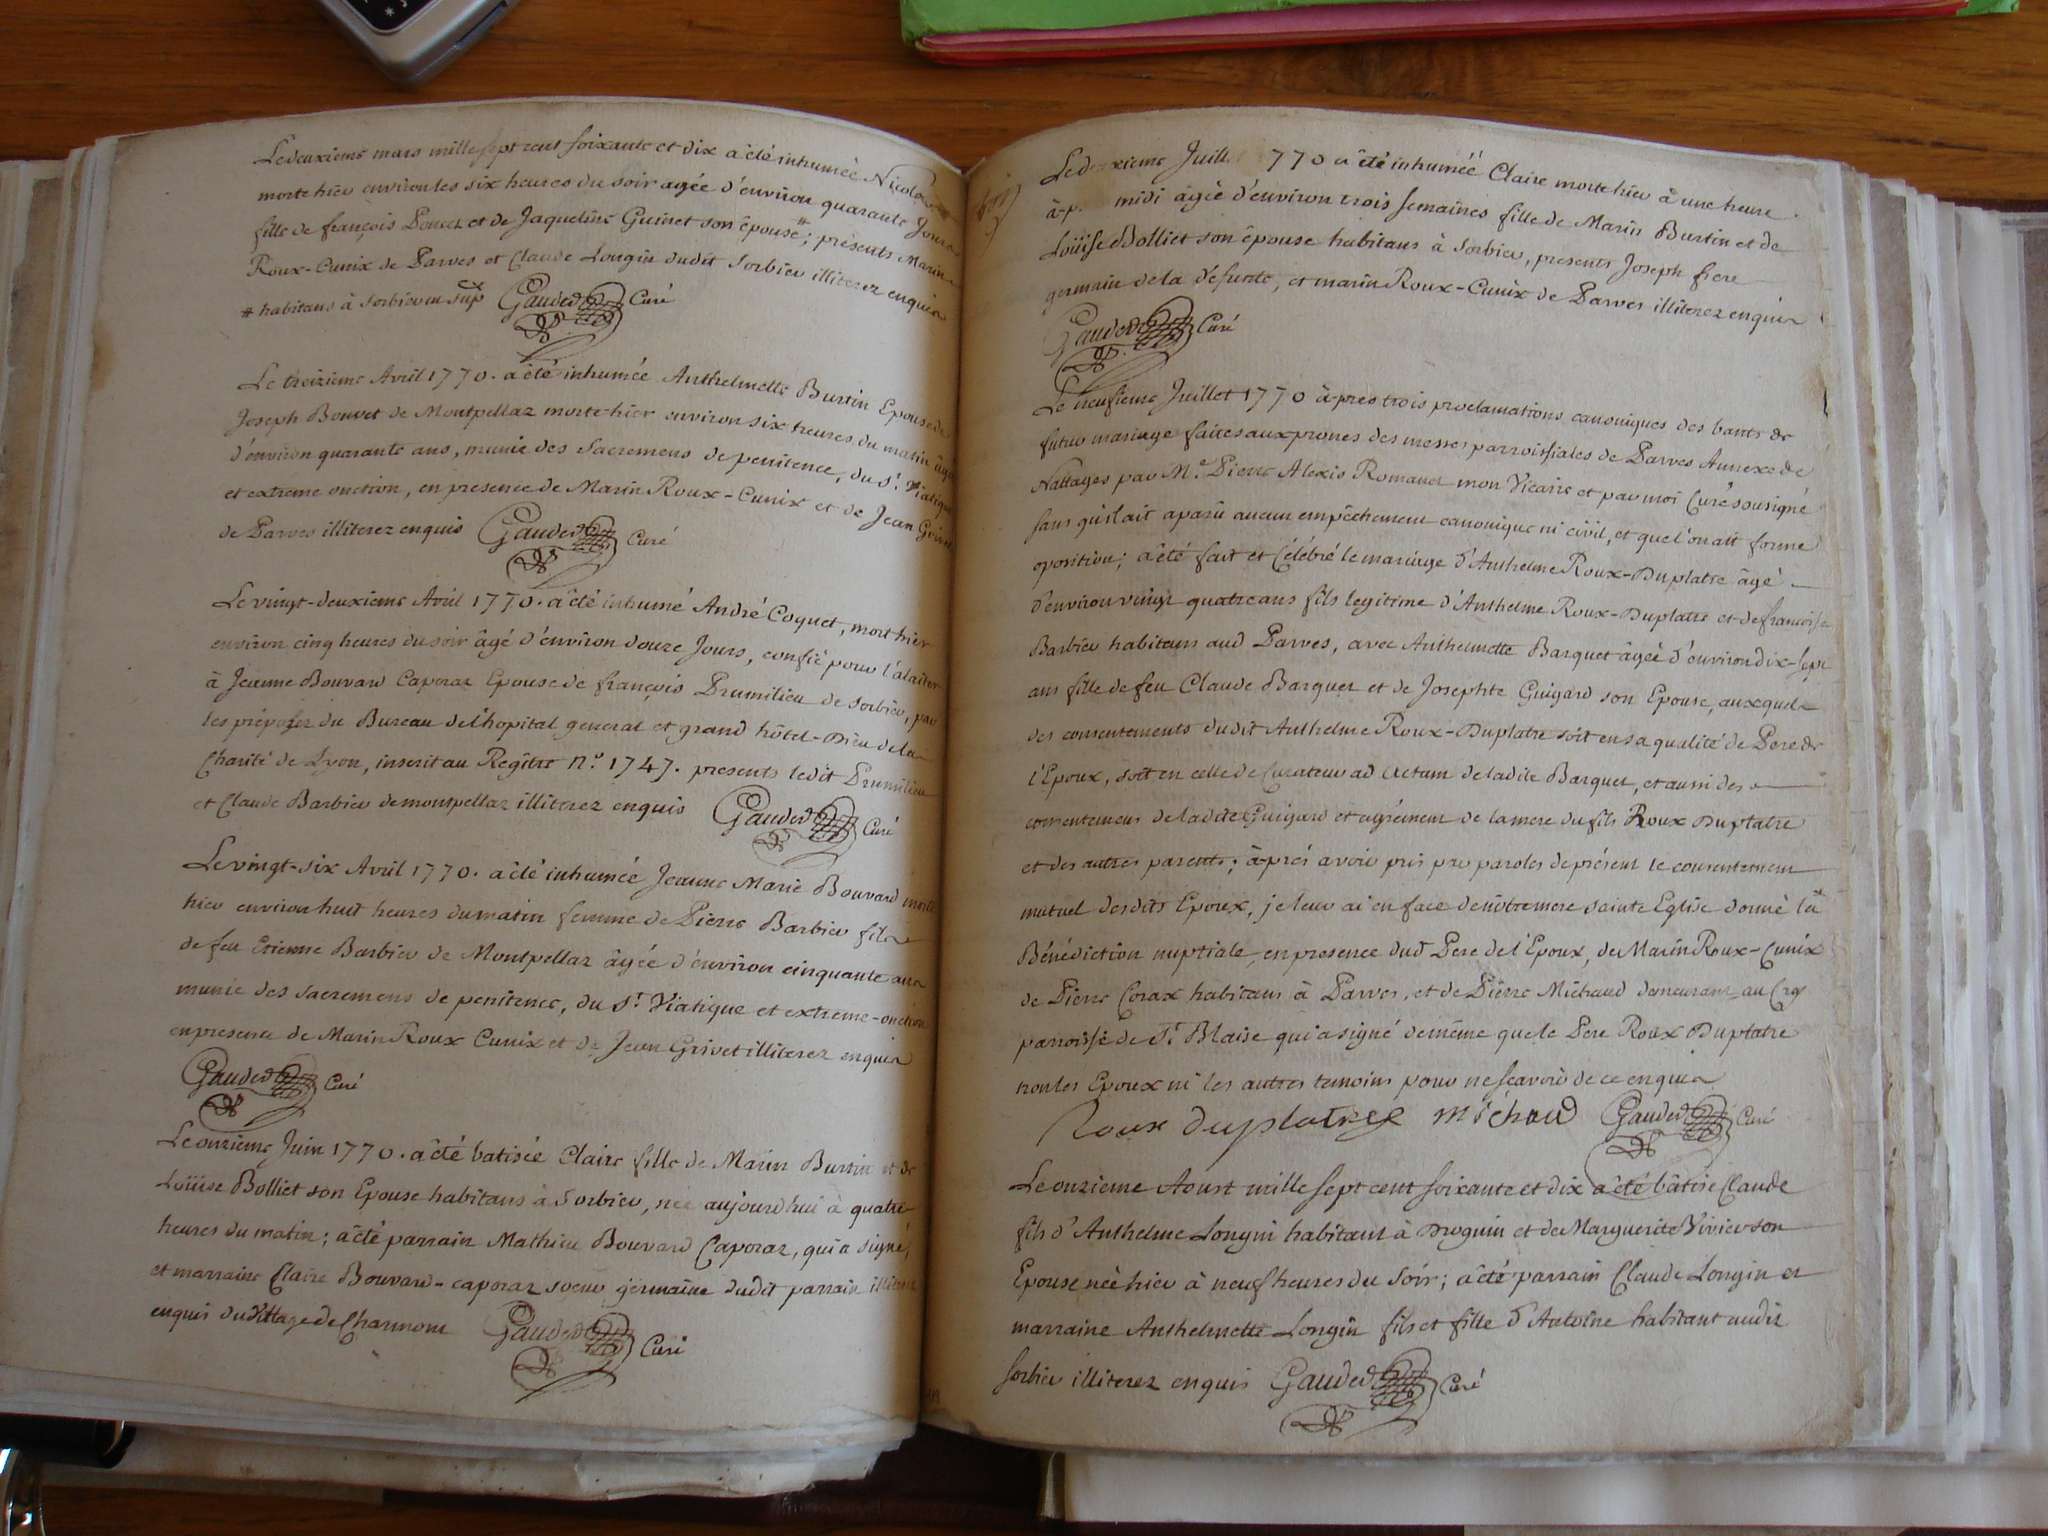 Le deuxieme mars mille sept cent soixante et dix a été inhumée Nicole
morte hier environ les six heures du soir agée d'environ quarante Jours
fille de françois Poncet et de Jaqueline Guinet son épouse#; présents Marin
Roux-Cunix de Parves et Claude Longin dudit Sorbier illiterez enquis
# habitans à Sorbier en sus Gauded Curé
Le treizieme Avril 1770. a été inhumée Anthelmette Burtin Epouse de
Joseph Bonvet de Montpellaz morte hier environ six heures du matin âgée
d'environ quarante ans, munie des Sacremens de penitence, du St. Viatique
et extreme onction, en presence de Marin Roux-Cunix et de Jean Grivet
de Parves illiterez enquis Gauded Curé
Le vingt-deuxieme Avril 1770. a été inhumé André Coquet, mort hier
environ cinq heures du soir âgé d'environ douze Jours, confié pour l'alaiter
à Jeanne Bouvard Caporaz Epouse de françois Prumilieu de Sorbier, par
les préposez du Bureau de l'hopital general et grand hôtel-Dieu de la
Charité de Lyon, inscrit au Regître n.º 1747. presents ledit Prumilieu
et Claude Barbier de montpellaz illiterez enquis Gauded Curé
Le vingt-six Avril 1770. a été inhumée Jeanne Marie Bouvard morte
hier environ huit heures du matin femme de Pierre Barbier fils
de feu Etienne Barbier de Montpellaz âgée d'environ cinquante ans
munie des sacremens de penitence, du St. Viatique et extreme-onction
en presence de Marin Roux Cunix et de Jean Grivet illiterez enquis
Gauded Curé
Le onzieme Juin 1770. a été batisée Claire fille de Marin Burtin et de
Loüise Bolliet son Epouse habitans à Sorbier, née aujourd'hui à quatre
heures du matin; a été parrain Mathieu Bouvard Caporaz, qui a signé,
et marraine Claire Bouvard-caporaz soeur germaine dudit parrain illiterée
enquis du Village de Charmont Gauded Curé
Le deuxieme Juillet 1770 a été inhumée Claire morte hier à une heure
à-p. midi âgée d'environ trois semaines fille de Marin Burtin et de
Loüise Bolliet son épouse habitans à Sorbier, presents Joseph frere
germain de la défunte, et marin Roux-Cunix de Parves illiterez enquis
Gauded Curé
Le neufieme Juillet 1770 à-pres trois proclamations canoniques des bants de
futur mariage faites aux prones des messes parroissiales de Parves Annexe de
Nattages par Me. Pierre Alexis Romanet mon Vicaire et par moi Curé sousigné
sans qu'il ait aparu aucun empêchement canonique ni civil, et que l'on ait formé
oposition; a été fait et Célébré le mariage d'Anthelme Roux-Duplatre âgé
d'environ vingt quatre ans fils legitime d'Anthelme Roux-Duplatre et de francoise
Barbier habitans aud Parves, avec Anthelmette Barquet âgée d'environ dix-sept
ans fille de feu Claude Barquet et de Josephte Guigard son Epouse, auxquels
des consentements dudit Anthelme Roux-Duplatre soit en sa qualité de Pere de
l'Epoux, soit en celle de Curateur ad Actum de ladite Barquet, et aussi des
consentemens de ladite Guigard et agrément de la mere du fils Roux Duplatre
et des autres parents; à-prés avoir pris par paroles de présent le consentement
mutuel desdits Epoux, je leur ai en face de nôtre mere sainte Eglise donné la
Bénédiction nuptiale, en presence dud Pere de l'Epoux, de Marin Roux-Cunix
de Pierre Corax habitans à Parves, et de Piérre Michaud demeurant au Crq
parroisse de St Blaise qui a signé de même que le Pere Roux Duplatre
non les Epoux ni les autres temoins pour ne scavoir de ce enquis
Roux duplatre michaud Gauded Curé
Le onzieme Aoust mille sept cent soixante et dix a été bâtisé Claude
fils d'Anthelme Longin habitant à Droguin et de Marguerite Vivier son
Epouse né hier à neuf heures du Soir; a été parrain Claude Longin et
marraine Anthelmette Longin fils et fille d'Antoine habitant audit
Sorbier illiterez enquis Gauded Curé